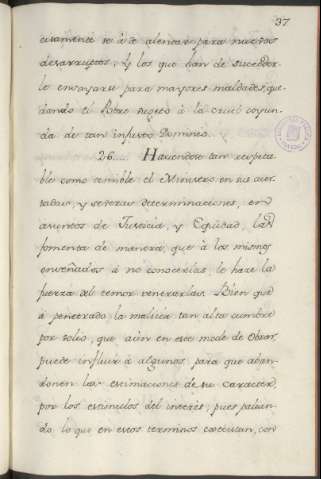 37
citamente se à de alentar para nuevos
desarruptos, y los que han de suceder
le ensayarse para mayores maldades, que
dando el Pobre sugeto à la cruel coyun
da de tan injusto Dominio.
26. Haciendose tan respeta
ble como temible el Ministro en sus acer
tadas, y severas determinaciones, en
asuntos de Justicia, y Equidad, las
fomenta de manera, que à los mismos
enseñados à no conocerlas, le hace la
fuerza del temor venerarlas. Bien que
à penetrado la malicia tan alta cumbre
por solio, que aùn en este modo de Obrar,
puede influir à algunos, para que aban
donen las estimaciones de su Caracter,
por los estimulos del interès, pues
do, lo que en estos terminos, con